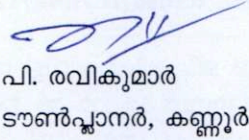 പി. രവികുമാർ
ടൗൺപ്ലാനർ, കണ്ണൂർ